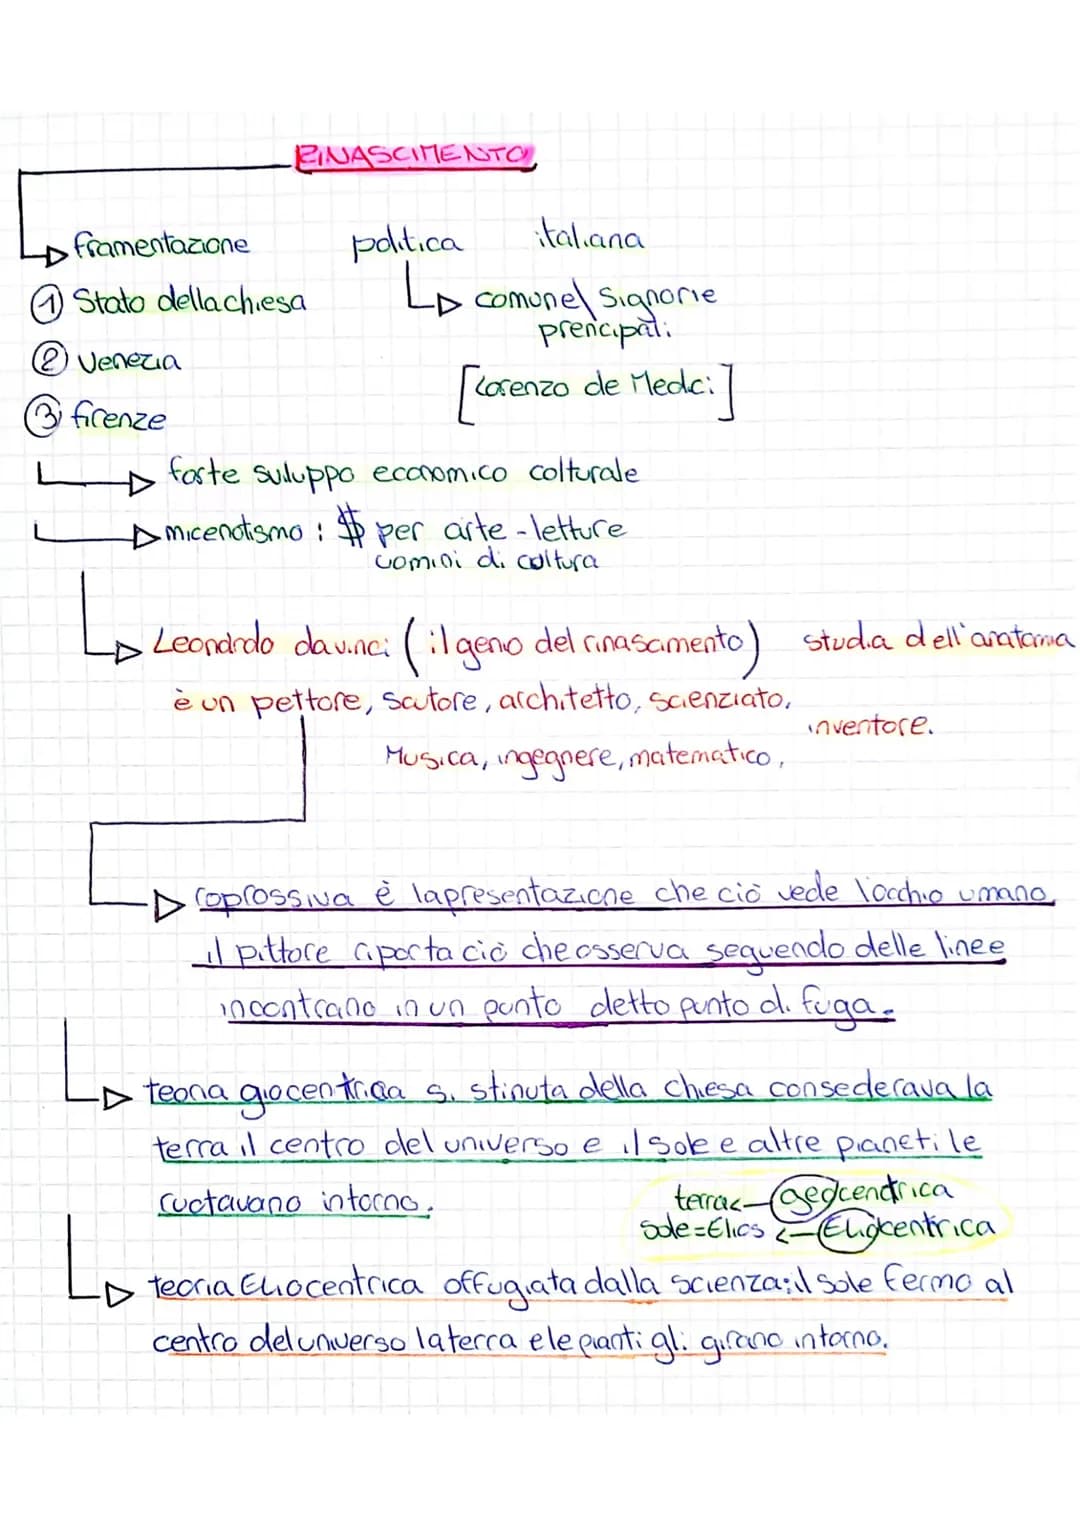 RINASCIMENTO
framentazione politica italiana
① Stato della chiesa
comune\ Signorie
prencipali
② Venezia
[Lorenzo de Medici]
③ firenze
forte suluppo economico colturale
micenatismo : $ per arte - letture
uomini di cultura
Leondrdo da vinci (il genio del rinascimento) studia dell'anatomia
è un pettore, scutore, architetto, scienziato,
inventore.
Musica, ingegnere, matematico,
roprossiva è lapresentazione che ciò vede l'occhio umano,
il pittore riporta ciò che osserva seguendo delle linee
incontrano in un punto detto punto di fuga.
teoria giocentrica si stinuta della chiesa consederava la
terra il centro del universo e il sole e altre pianeti le
ruotavano intorno.
terra<-geocendrica
Sole=Elios <-Eliocentrica
teoria Eliocentrica offugiata dalla scienza; il sole fermo al
centro del universo la terra e le pianti gli girano intorno.